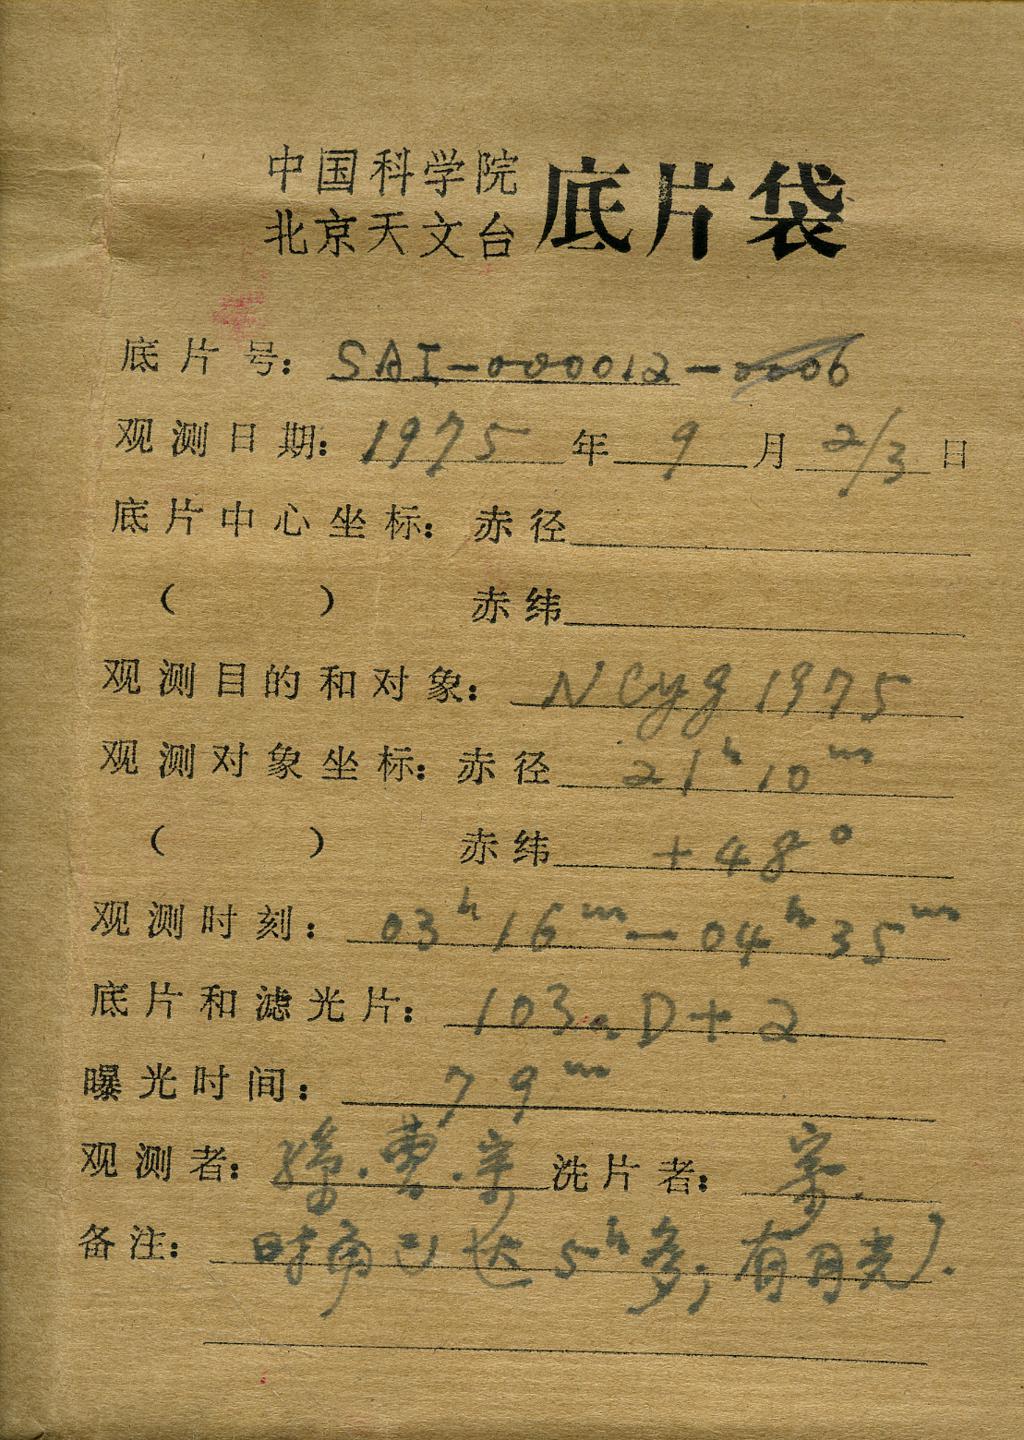 中国科学院
北京天文台 底片袋
底片号: SAI-000012-0006
观测日期: 1975 年 9 月 2/3 日
底片中心坐标: 赤径
( ) 赤纬
观测目的和对象: N Cyg 1975
观测对象坐标: 赤径 21h 10m
( ) 赤纬 +48°
观测时刻: 03h 16m — 04h 35m
底片和滤光片: 103aD+2
曝光时间: 79m
观测者: 洗片者:
备注: 时角已达 5h多; 有月光).